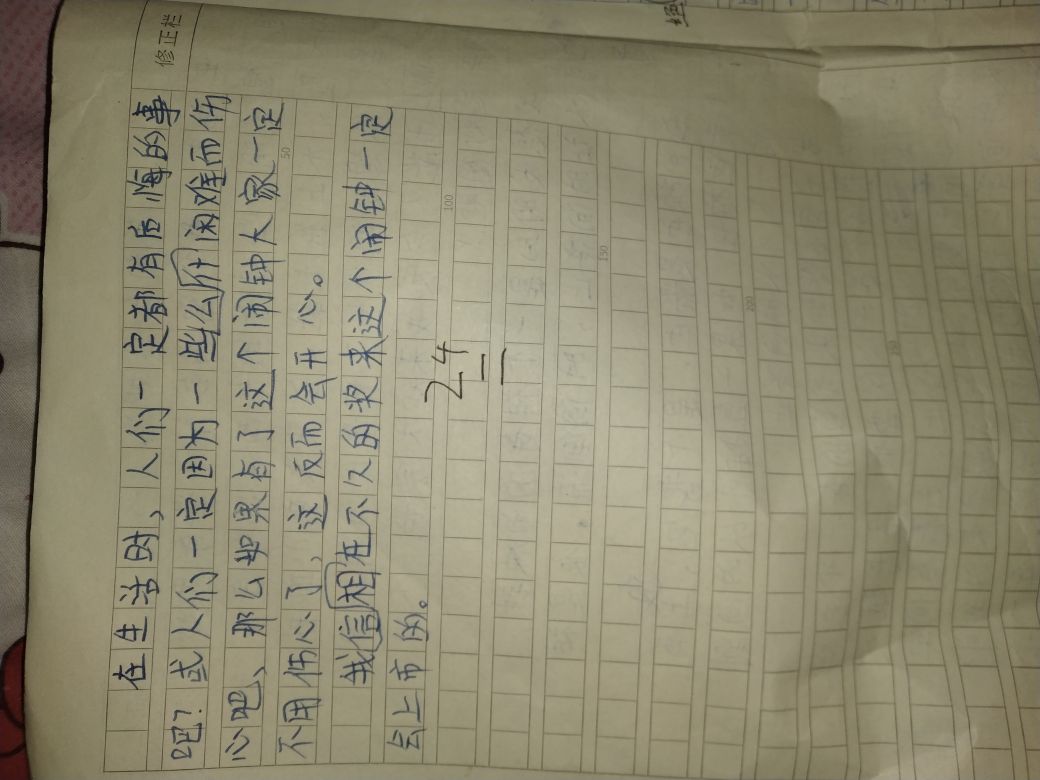 修正栏
在生活时、人们一定都有后悔的事
吧？或人们一定因为一些么什困难而伤
心吧、那么如果有了这个闹钟大家一定
不用伤心了，这反而会开心。
我信相在不久的奖来这个闹钟一定
会上市的。
24
50
100
150
200
250